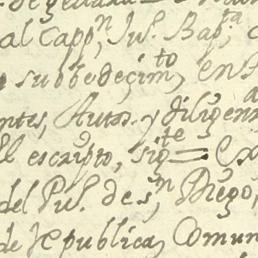 al Capp.n Ju.s Bap.ta
o subbedecim.to en
ntes, Autos. y diligen
el escripto, sig.te = Ex
del Pu.o de S.n Diego,
de republica, Comun